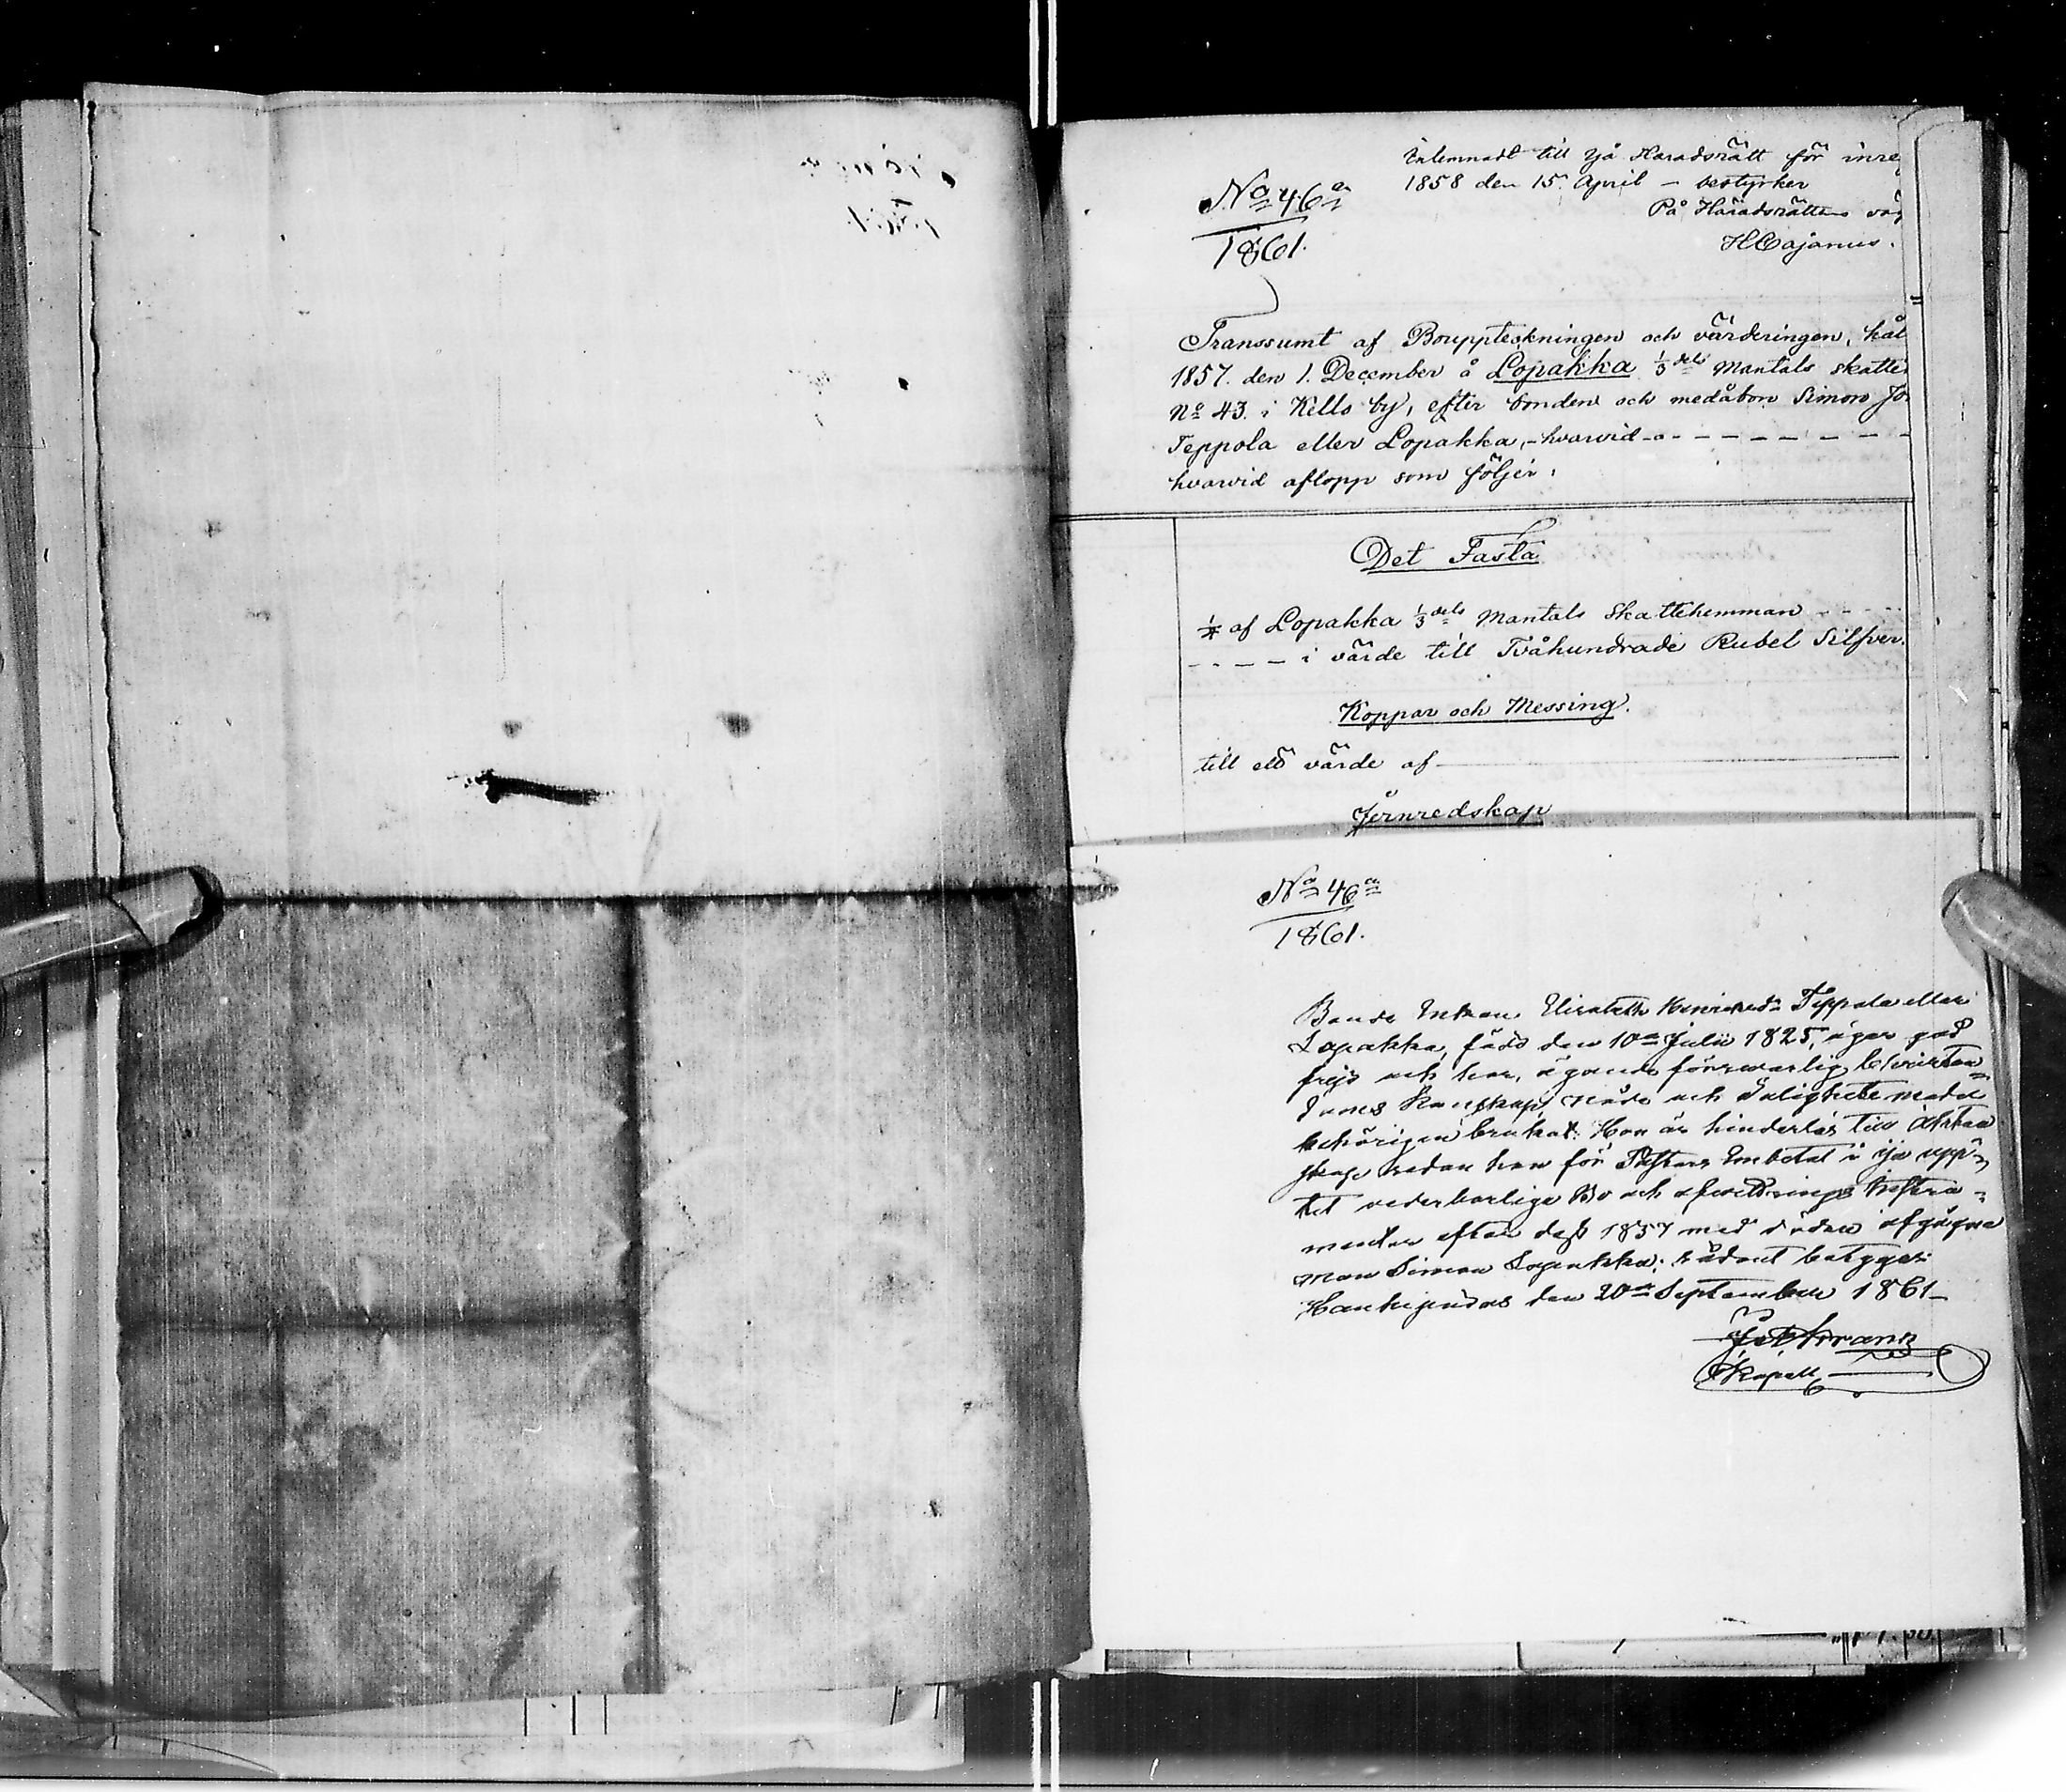 No 46a
1861.
Inlemnadt till Ijå Häradsrätt för inre
1858 den 15. April – bestyrker
På Häradsrättens väg
HCajanus.
Transsumt af Bouppteckningen och värderingen, hål
1857. den 1. December å Lopakka 1/3 dels Mantals skatte
No 43. i Kello by, efter bonden och medåbon Simon Jo
Teppola eller Lopakka, – hvarvid – – – – – – – –
hvarvid aflopp som följer:
Det Fasta
af Lopakka 1/3 dels Mantals Skattehemman – – – –
– – – – i värde till Tvåhundrade Rubel Silfver.
Koppar och Messing.
till ett värde af
Jernredskap
No 46a
1861.
Bonde Enkan Elisabeth Henriksdr Teppola eller
Lopakka, född den 10de Julii 1825, äger god
frejd och har, ägande försvarlig Christen-
doms Kunskap, nåde och salighets medel
behörigen brukat. Hon är hinderlös till Äkten
skap sedan hon för Pastors Embetet i Ijo upp-
tet vederbörlige Bo och afvittrings Instru-
menter efter dess 1857 med döden afgågne
man Simon Lopakka; sådant betygar
Haukipudas den 20de September 1861 –
Kapell